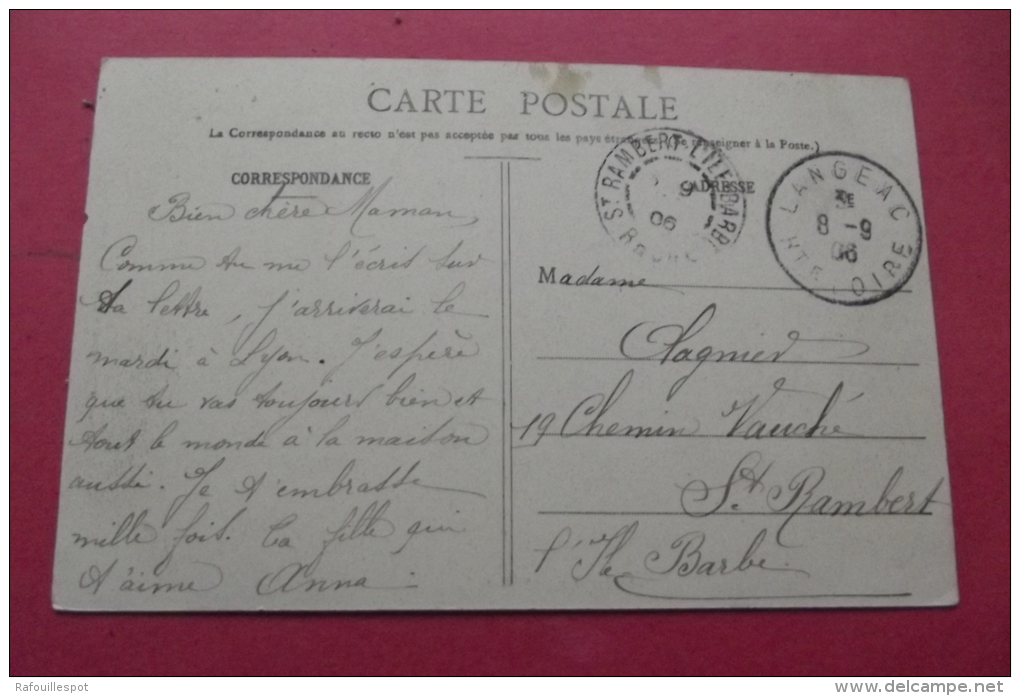 CARTE POSTALE
La Correspondance au recto n'est pas acceptée par tous les pays étrangers (Se renseigner à la Poste.)
CORRESPONDANCE
Bien chère Maman
Comme tu me l'écris sur
ta lettre, j'arriverai le
mardi à Lyon. J'espère
que tu vas toujours bien et
tout le monde à la maison
aussi. Je t'embrasse
mille fois. Ta fille qui
t'aime Anna.
ADRESSE
Madame
Clagnier
19 Chemin Vauché
St. Rambert
l'Ile Barbe.
ST RAMBERT-L'ILE-BARBE
9
06
RHONE
LANGEAC
3E
8 -9
06
HTE LOIRE
Rafouillespot
www.delcampe.net